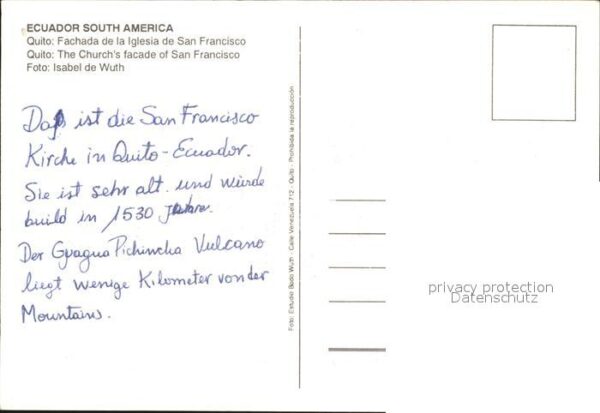 ECUADOR SOUTH AMERICA
Quito: Fachada de la Iglesia de San Francisco
Quito: The Church's facade of San Francisco
Foto: Isabel de Wuth
Das ist die San Francisco
Kirche in Quito-Ecuador.
Sie ist sehr alt. und würde
build in 1530 Jahre.
Der Guagua Pichincha Vulcano
liegt wenige Kilometer von der
Mountains.
Foto: Estudio Bodo Wuth - Calle Venezuela 712 - Quito - Prohibida la reproducción
privacy protection
Datenschutz